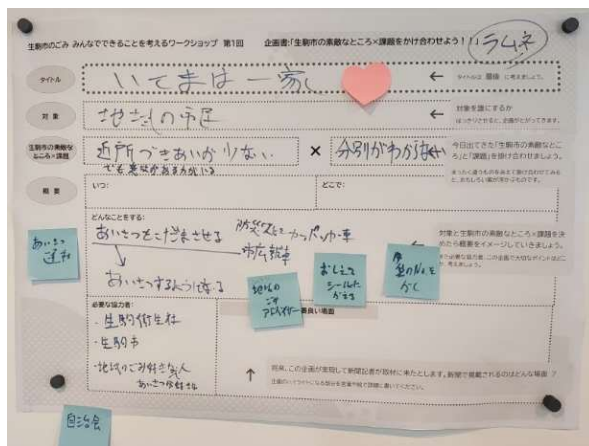 生駒市のごみ みんなでできることを考えるワークショップ 第1回
企画書:「生駒市の素敵なところ×課題をかけ合わせよう!!」
ラムネ
タイトル
いてまは一家
← タイトルは 最後 に考えましょう。
対象
地域の市民
← 対象を誰にするか
はっきりさせると、企画がとがってきます。
生駒市の素敵なところ×課題
近所づきあいが少ない
×
分別がわからない
今日出てきた「生駒市の素敵なところ」と「課題」を掛け合わせましょう。
概要
いつ:
どこで:
どんなことをする:
あいさつをこだまさせる
あいさつするようになる
対象と生駒市の素敵なところ×課題を決めたら概要をイメージしていきましょう。
あいさつ
運動
地域の
ごみ
アドバイザー
おしえて
シールに
かえる
必要な協力者:
・生駒衛生社
・生駒市
・地域のごみ好きな人
あいさつ好きな
最良い場面
↑
将来、この企画が実現して新聞記者が取材に来たとします。新聞で掲載されるのはどんな場面?
自治会